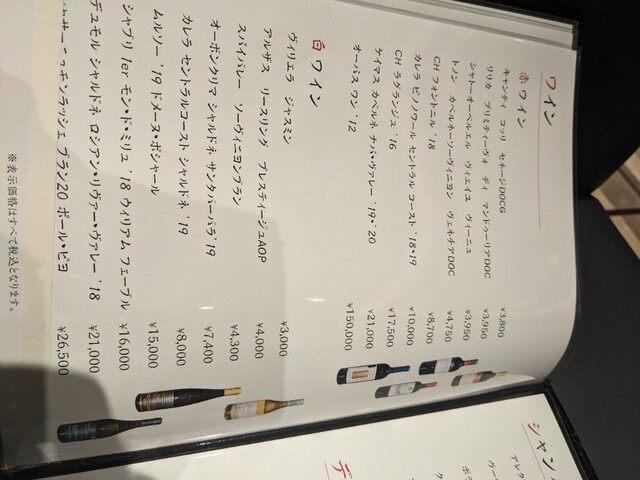 ワイン
赤ワイン
キャンティ コッリ セネージDOCG ¥3,800
リリカ プリミティーヴォ ディ マンドゥーリアDOC ¥3,950
シャトーオーベルエル ヴィエイユ ヴィーニュ ¥3,950
トノン カベルネーソーヴィニヨン ヴェネチアDOC ¥4,750
CH フォントニル '18 ¥8,700
カレラ ピノノワール セントラル コースト '18・19 ¥10,000
CH ラグランジュ '16 ¥17,500
ケイマス カベルネ ナパ・ヴァレー '19・'20 ¥21,000
オーパス ワン '12 ¥150,000
白ワイン
ヴィリエラ ジャスミン ¥3,000
アルザス リースリング プレスティージュAOP ¥4,000
スパイバレー ソーヴィニヨンブラン ¥4,300
オーボンクリマ シャルドネ サンタバーバラ'19 ¥7,400
カレラ セントラルコースト シャルドネ '19 ¥8,000
ムルソー '19 ドメーヌ・ボシャール ¥15,000
シャブリ 1er モン・ド・ミリュ '18 ウィリアム フェーブル ¥16,000
デュモル シャルドネ ロシアン・リヴァー・ヴァレー '18 ¥21,000
モンラッシェ ブラン20 ポール・ピヨ ¥26,500
※表示価格はすべて税込となります。
シャン
アレク
ヴー
ボラ
デ